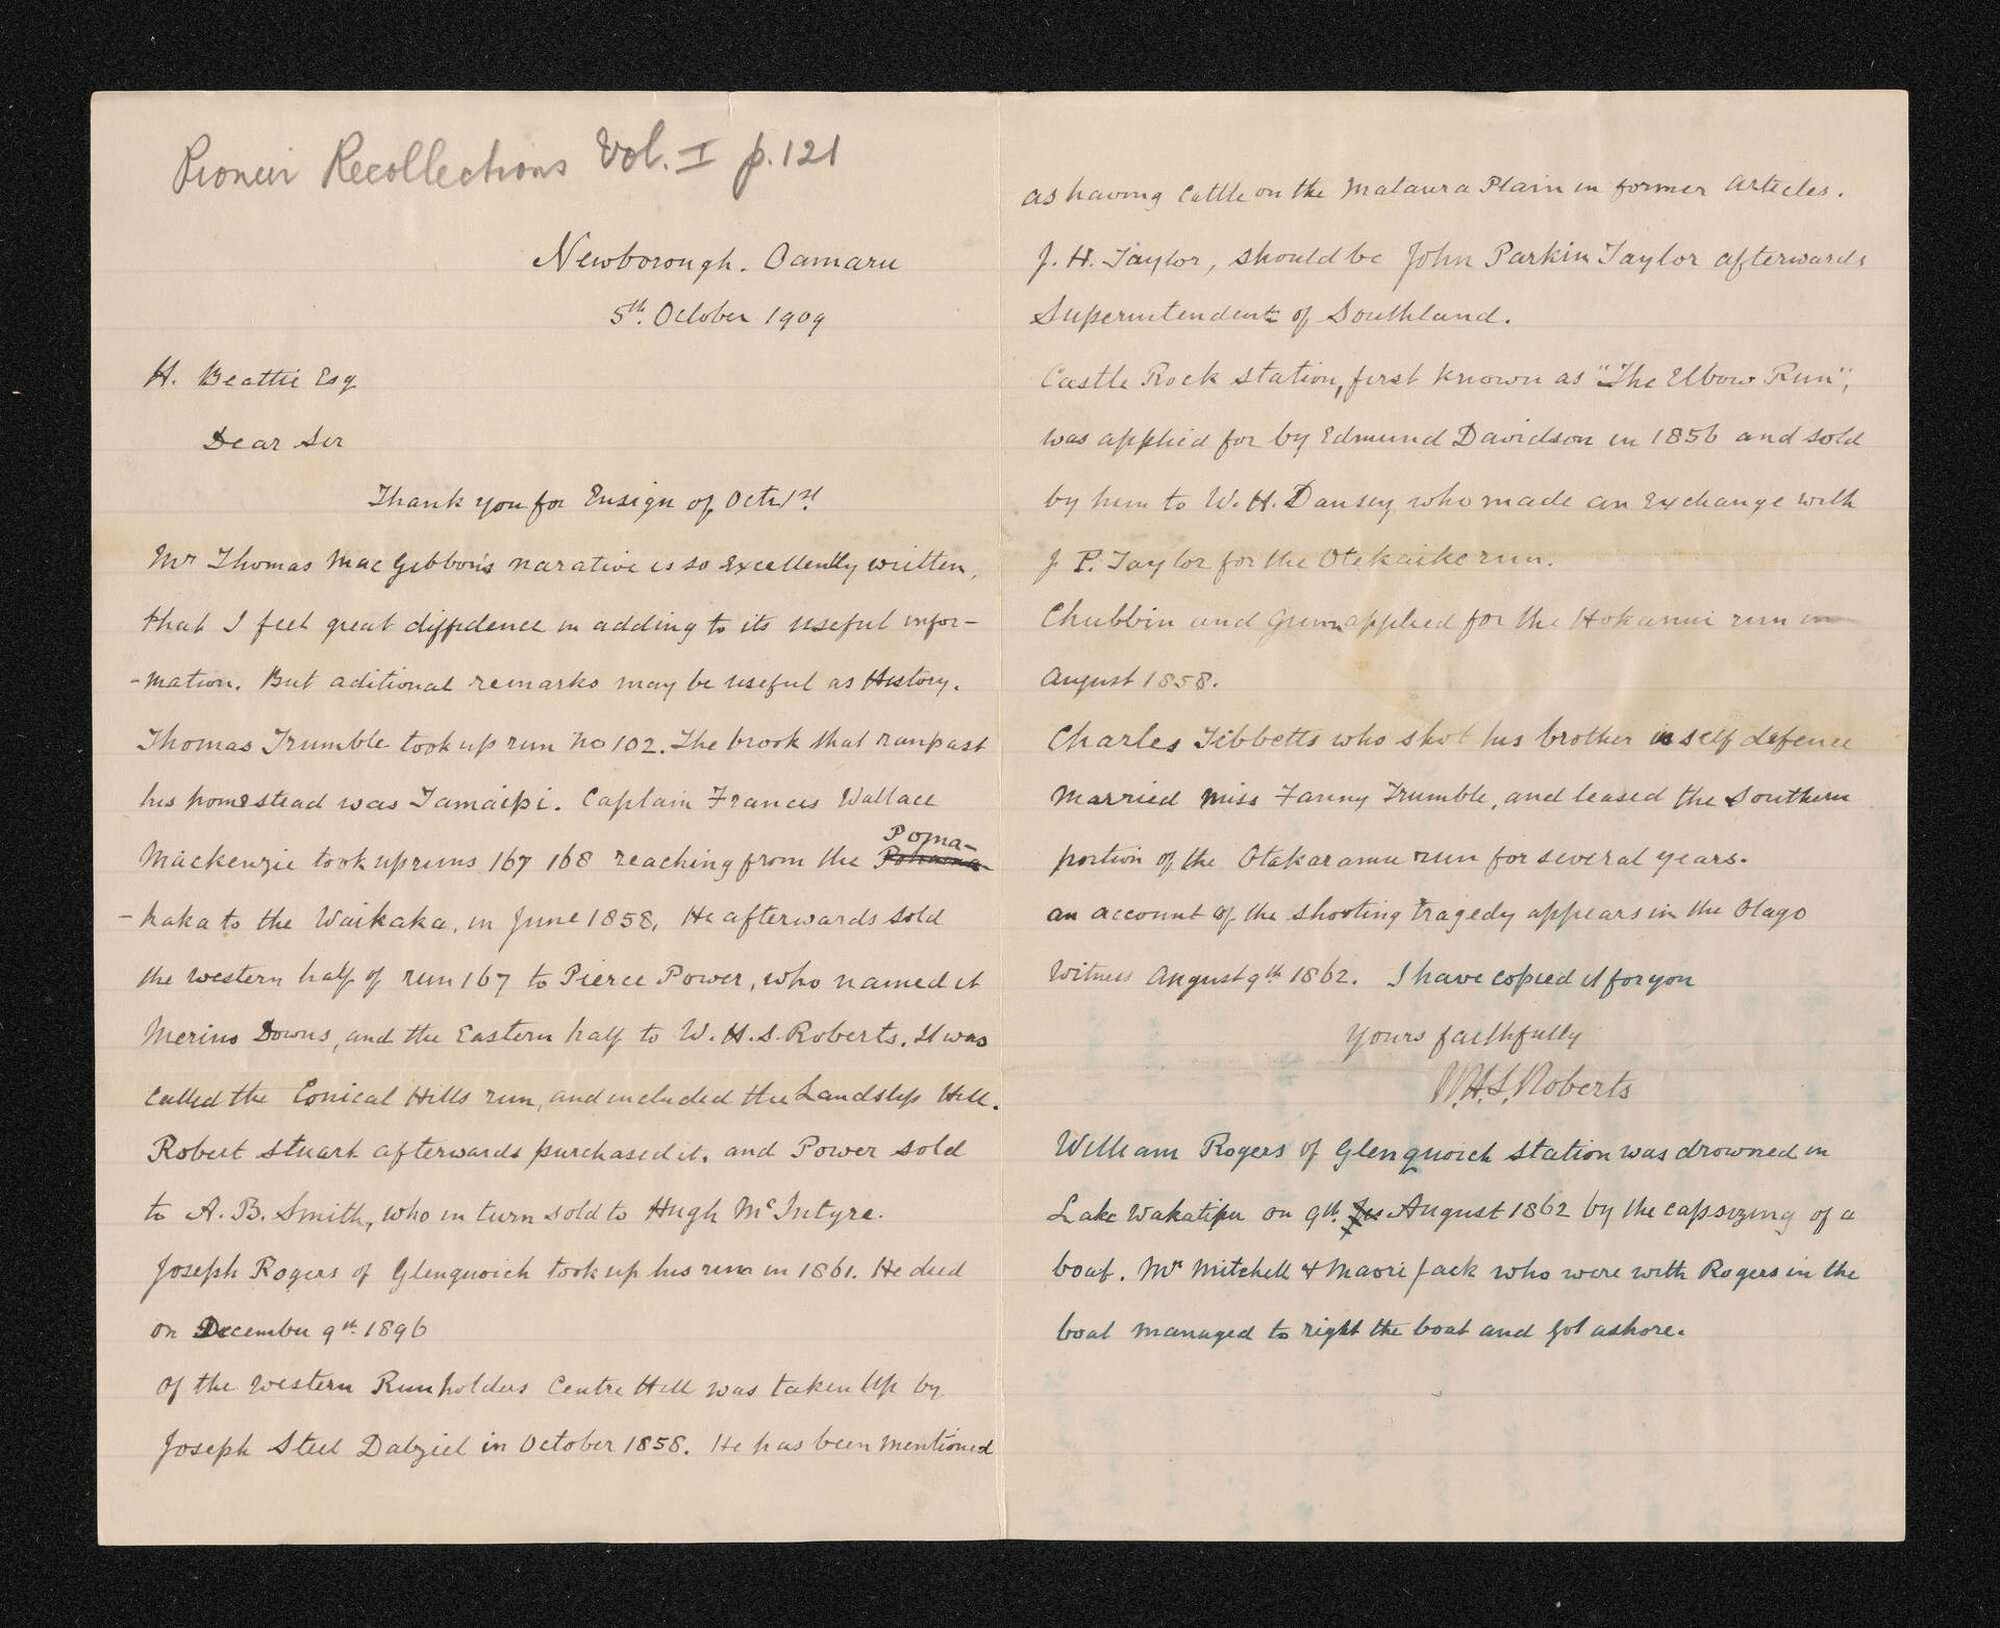 Pioneer Recollections Vol. I p. 121
Newborough. Oamaru
5th. October 1909
H. Beattie Esq
Dear Sir
Thank you for Ensign of Oct 1st.
Mr Thomas MacGibbon's narative is so Excellently written,
that I feel great diffidence in adding to its useful infor-
-mation. But aditional remarks may be useful as History.
Thomas Trumble took up run No 102. The brook that ran past
his homestead was Tamaipi. Captain Francis Wallace
Poma-
Mackenzie took up runs 167 168 reaching from the
-haka to the Waikaka, in June 1858. He afterwards sold
the western half of run 167 to Pierce Power, who named it
Merino Downs, and the Eastern half to W. H. S. Roberts. It was
Called the Conical Hills run, and included the Landslip Hill.
Robert Stuart afterwards purchased it. and Power sold
to A. B. Smith, who in turn sold to Hugh McIntyre.
Joseph Rogers of Glenquoich took up his run in 1861. He died
on December 9th 1896
Of the Western Runholders Centre Hill was taken Up by
Joseph Steel Dalziel in October 1858. He has been mentioned
as having Cattle on the Mataura Plain in former Articles.
J. H. Taylor, should be John Parkin Taylor afterwards
Superintendent of Southland.
Castle Rock Station, first known as "The Elbow Run",
was applied for by Edmund Davidson in 1856 and sold
by him to W. H. Dansey who made an Exchange with
J P. Taylor for the Otekaike run.
Chubbin and Gunn applied for the Hokanui run in
August 1858.
Charles Tibbetts who shot his brother in self defence
Married Miss Fanny Trumble, and leased the Southern
portion of the Otakarama run for several years.
an account of the shooting tragedy appears in the Otago
Witness August 9th 1862. I have copied it for you
Yours faithfully
W.H.S. Roberts
William Rogers of Glenquoich Station was drowned in
Lake Wakatipu on 9th. August 1862 by the capsizing of a
boat. Mr Mitchell & Maori Jack who were with Rogers in the
boat managed to right the boat and got ashore.